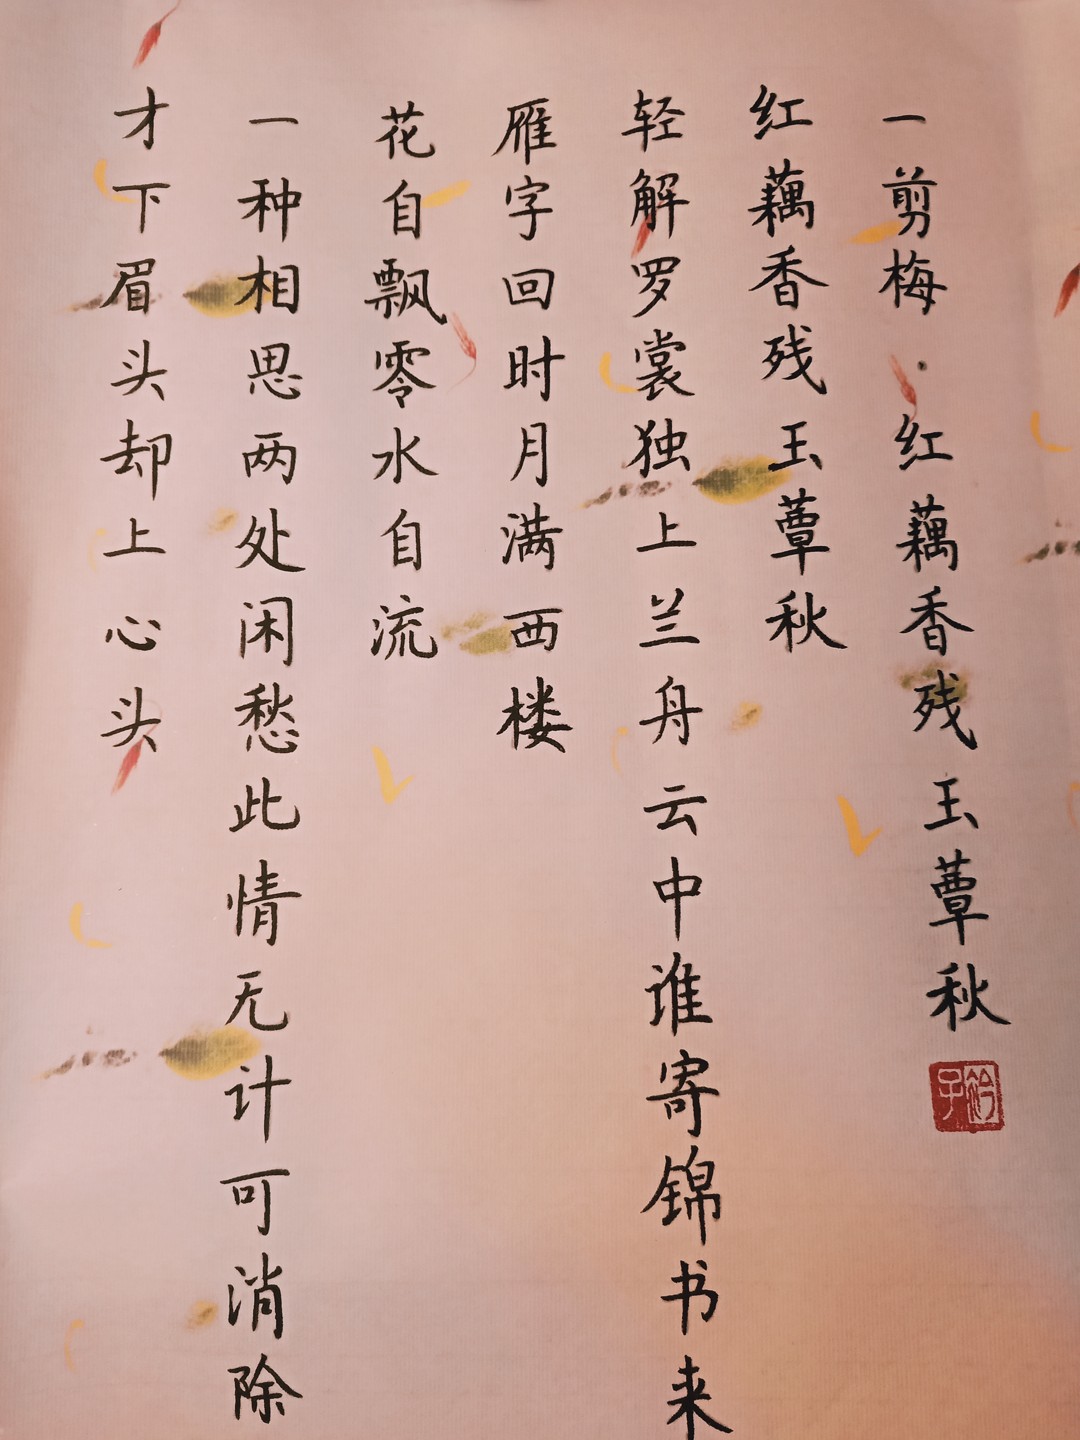 一剪梅·红藕香残玉蕈秋
红藕香残玉蕈秋
轻解罗裳独上兰舟云中谁寄锦书来
雁字回时月满西楼
花自飘零水自流
一种相思两处闲愁此情无计可消除
才下眉头却上心头